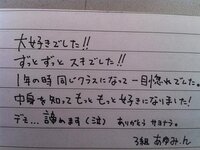 大好きでした!!
ずっとずっとスキでした!!
1年の時同じクラスになって一目惚れでした。
中身を知ってもっともっと好きになりました!
デモ…諦めます(泣) ありがとう サヨナラ。
3組 あゆみ.н